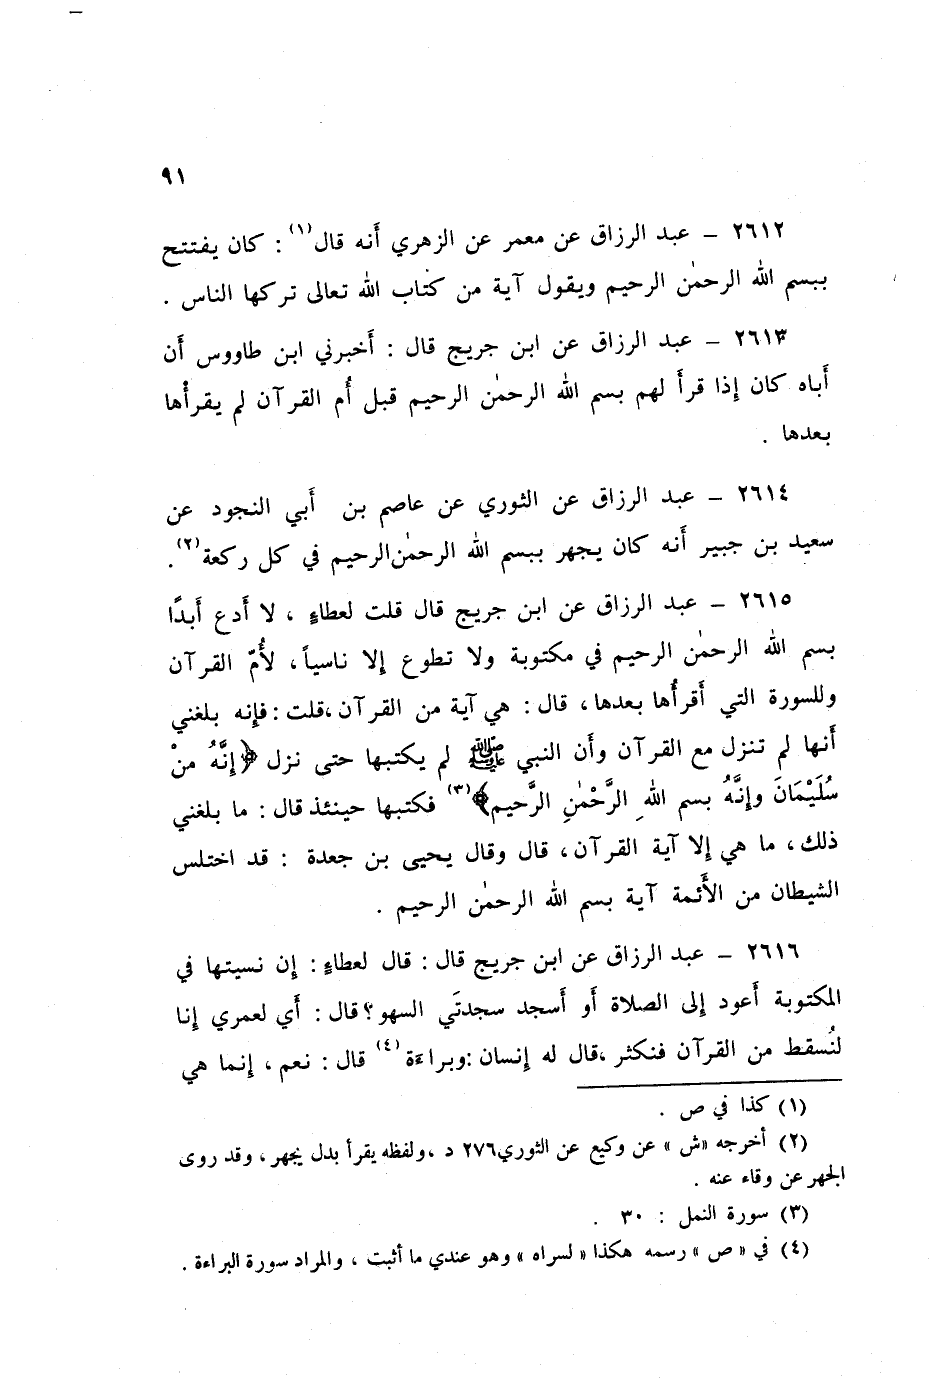 ٩١
٢٦١٢ ــ عبد الرزاق عن معمر عن الزهري أَنه قال(١) : كان يفتتح
ببسم الله الرحمٰن الرحيم ويقول آية من كتاب الله تعالى تركها الناس .
٢٦١٣ ــ عبد الرزاق عن ابن جريج قال : أَخبرني ابن طاووس أَن
أَباه كان إِذا قرأَ لهم بسم الله الرحمٰن الرحيم قبل أُم القرآن لم يقرأْها
بعدها .
٢٦١٤ ــ عبد الرزاق عن الثوري عن عاصم بن أَبي النجود عن
سعيد بن جبير أَنه كان يجهر ببسم الله الرحمٰن الرحيم في كل ركعة(٢) .
٢٦١٥ ــ عبد الرزاق عن ابن جريج قال قلت لعطاءٍ ، لا أَدع أَبدًا
بسم الله الرحمٰن الرحيم في مكتوبة ولا تطوع إِلا ناسياً ، لأُمّ القرآن
وللسورة التي أَقرأُها بعدها ، قال : هي آية من القرآن ،قلت : فإِنه بلغني
أَنها لم تنزل مع القرآن وأَن النبي ﷺ لم يكتبها حتى نزل ﴿إِنَّهُ منْ
سُلَيْمَانَ وإِنَّهُ بسم اللهِ الرَّحْمٰنِ الرَّحيم﴾(٣) فكتبها حينئذ قال : ما بلغني
ذلك ، ما هي إِلا آية القرآن ، قال وقال يحيى بن جعدة : قد اختلس
الشيطان من الأَئمة آية بسم الله الرحمٰن الرحيم .
٢٦١٦ ــ عبد الرزاق عن ابن جريج قال : قال لعطاءٍ : إِن نسيتها في
المكتوبة أَعود إِلى الصلاة أَو أَسجد سجدتَي السهو ؟ قال : أَي لعمري إِنا
لنُسقط من القرآن فنكثر ،قال له إِنسان :وبراءَة(٤) قال : نعم ، إِنما هي
(١) كذا في ص .
(٢) أخرجه «ش» عن وكيع عن الثوري ٢٧٦ د ،ولفظه يقرأ بدل يجهر ، وقد روى
الجهر عن وقاء عنه .
(٣) سورة النمل : ٣٠ .
(٤) في «ص» رسمه هكذا «لسراه» وهو عندي ما أثبت ، والمراد سورة البراءة .